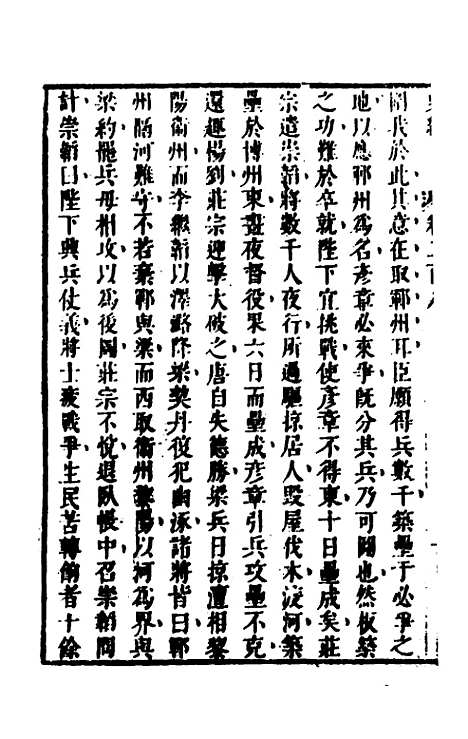 圍我於此其意在取鄆州耳臣願得兵數千築壘于必爭之
地以應鄆州爲名彥章必來爭旣分其兵乃可圖也然板築
之功難於卒就陛下宜挑戰使彥章不得東十日壘成矣莊
宗遣崇韜將數千人夜行所過驅掠居人毀屋伐木渡河築
壘於博州東晝夜督役果六日而壘成彥章引兵攻壘不克
還趣楊劉莊宗迎擊大破之唐自失德勝梁兵日掠澶相黎
陽衛州而李繼韜以澤潞降梁契丹復犯幽涿諸將皆曰鄆
州隔河難守不若棄鄆與梁而西取衛州黎陽以河爲界與
梁約罷兵毋相攻以爲後圖莊宗不悅退臥帳中召崇韜問
計崇韜曰陛下興兵仗義將士疲戰爭生民苦轉餉者十餘